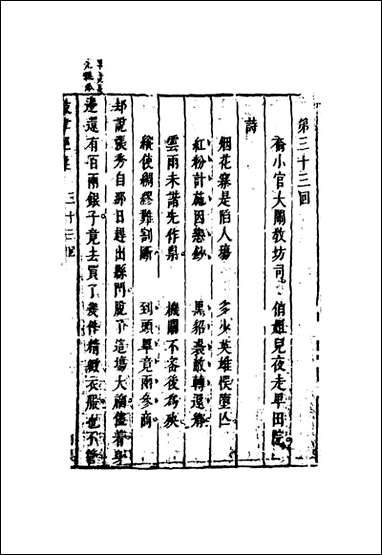 第三十三回
喬小官大鬧教坊司 俏姐兒夜走卑田院
詩
烟花寨是陷人塲 多少英雄悮墮亾
紅粉計施因戀鈔 黑貂裘敝轉還鄉
雲雨未諧先作祟 機關不密後為殃
縱使綢繆難割斷 到頭畢竟兩參商
却說張秀自那日趕出縣門脫了這塲大禍儘着身
邊還有百兩銀子竟去買了幾件精緻衣服也不管
鼓掌絕塵 三十三回